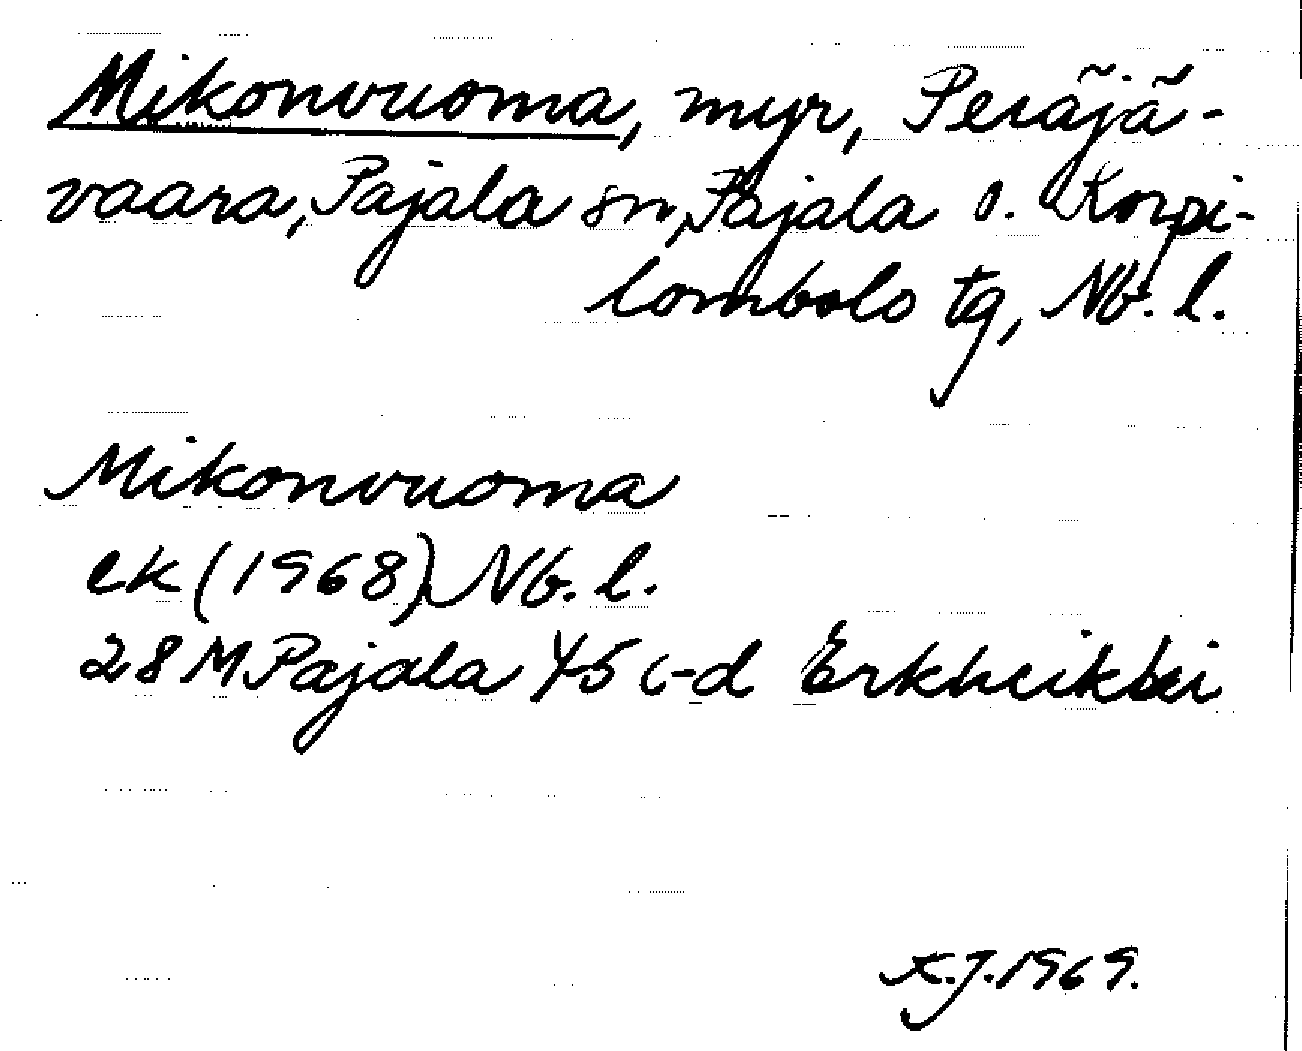 Mikonvuoma, myr, Peräjä-
vaara, Pajala sn, Pajala o. Korpi-
lombolo tg, Nb. l.
Mikonvuoma
ek (1968) Nb. l.
28 M Pajala Y5 c-d Erkheikki
K.J. 1969.